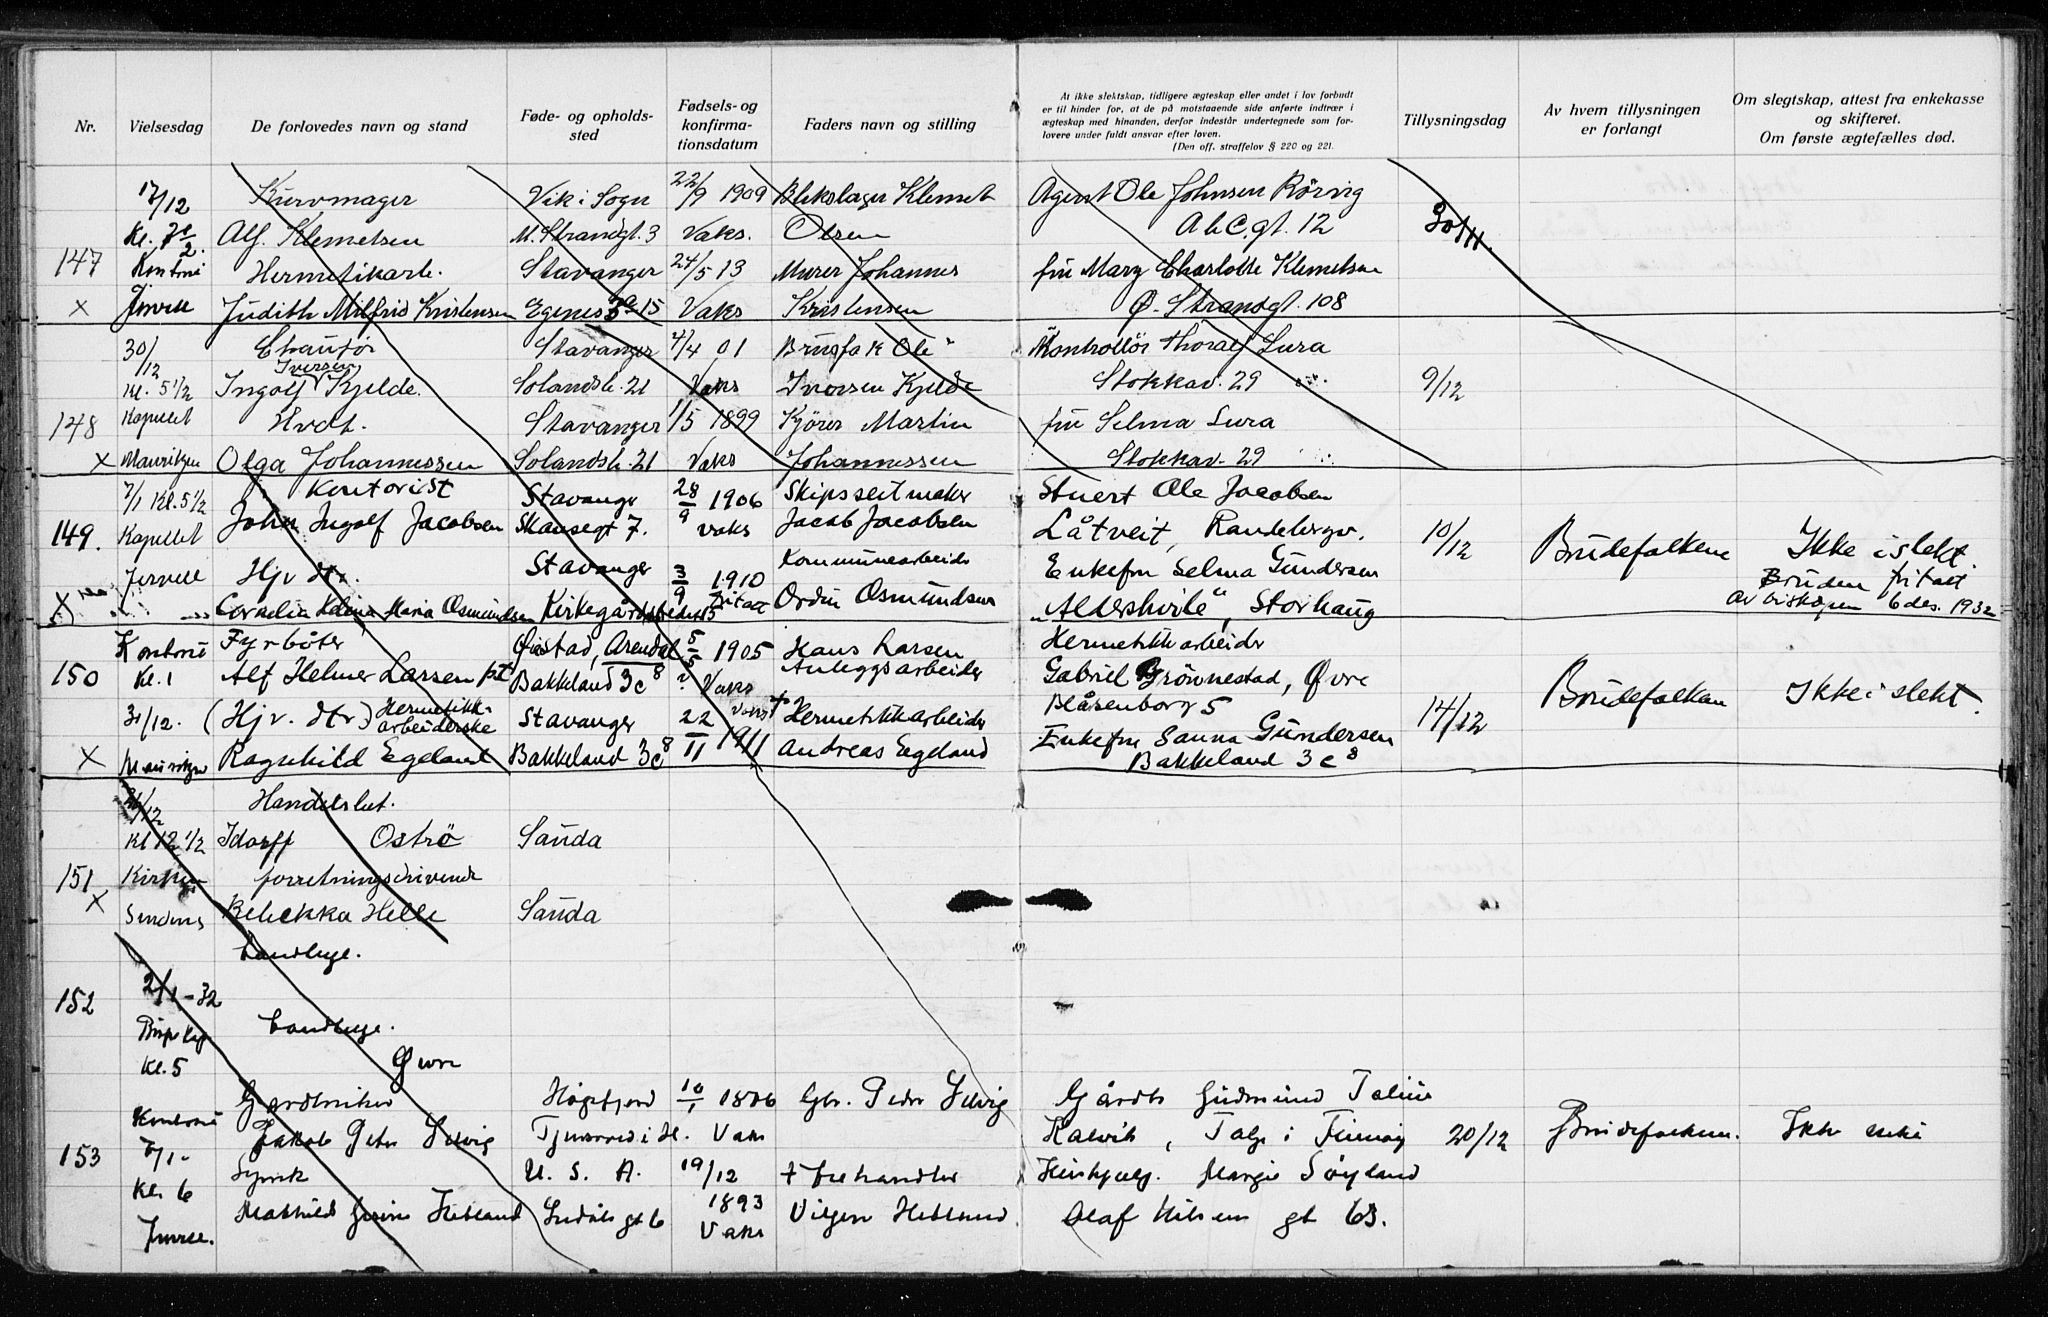 Nr.
Vielsesdag
De forlovedes navn og stand
Føde- og opholds-
sted
Fødsels- og
konfirma-
tionsdatum
Faders navn og stilling
At ikke slektskap, tidligere ægteskap eller andet i lov forbudt
er til hinder for, at de på motstaaende side anførte indtrær i
ægteskap med hinanden, derfor indestår undertegnede som for-
lovere under fuldt ansvar efter loven.
(Den off. straffelov § 220 og 221.
Tillysningsdag
Av hvem tillysningen
er forlangt
Om slegtskap, attest fra enkekasse
og skifteret.
Om første ægtefælles død.
17/12 Kurvmager Vik i Sogn 22/9 1909 Blikslager Klemet Agent Ole Johnsen Rörvig
Kl. 7 1/2 Alf. Klemetsen M. Strandgt. 3 Vaks. Olsen AbC.gt. 12 30/11.
147 Kontoret Hermetikarb. Stavanger 24/5 13 Murer Johannes fru Mary Charlotte Klemetsen
x Judith Milfrid Kristensen Egenes 15 Vaks Kristensen Ø. Strandgt. 108
30/12 Chauför Stavanger 4/4 01 Ole Kontrollör Thoralf Lura
Kl. 5 1/2 Ingolf Iversen Kjelde. Solandsb. 21 Vaks Iversen Kjelde Stokkav. 29 9/12
148 Kapellet Hvdt. Stavanger 1/5 1899 Kjörer Martin fru Selma Lura
x Mauritzen Olga Johannessen Solandsb. 21 Vaks Johannessen Stokkav. 29
7/1 Kl. 5 1/2 Kontorist Stavanger 28/9 1906 Skipsseilmaker Stuert Ole Jacobsen
149. Kapellet John Ingolf Jacobsen Skansegt 7. vaks Jacob Jacobsen Låtveit, Randebergv. 10/12 Brudefolkene Ikke i slekt.
Jervell Hjv dtr. Stavanger 3/9 1910 Kommunearbeider Enkefru Selma Gundersen Bruden fritatt
x Cornelia Helena Maria Osmundsen fritatt Ordin Osmundsen "Aldershvile", Storhaug av biskopen 6 des. 1932
Kontoret Fyrböter Øistad, Arendal 5/5 1905 Hans Larsen Hermetikkarbeider
150 Kl. 1 Alf Helmer Larsen Bakkeland 3c8 Vaks Anleggsarbeider Gabriel Grönnestad, Øvre Brudefolkene Ikke i slekt.
31/12. (Hjv. dtr) Hermetikk-
arbeiderske Stavanger 22/11 1911 Vaks + Hermetikkarbeider Blåsenborg 5 14/12
x Mauritzen Ragnhild Egeland Bakkeland 3c8 Andreas Egeland Enkefru Sanna Gundersen
Bakkeland 3c8
/12 Handelsbet.
Kl 12 1/2 Idorff Oströ Sauda
151 Kirken forretningsdrivende
x Rebekka Helle Sauda
Landhuge.
152 2/1-32
Landhuge.
Kl. 5 Øvre
Kontoret Gårdbruker Høgsfjord 10/1 1886 Gbr. Peder Selvig Gårdb. Gudmund
153 7/1. Jakob Peter Selvig Vaks i Finnøy 20/12 Brudefolkene. Ikke
Kl. 6 U. S. A. 19/12 + handler
1893
Mathilde Hetland gt 6 Vaks Hetland Olaf Nilsens gt 63.